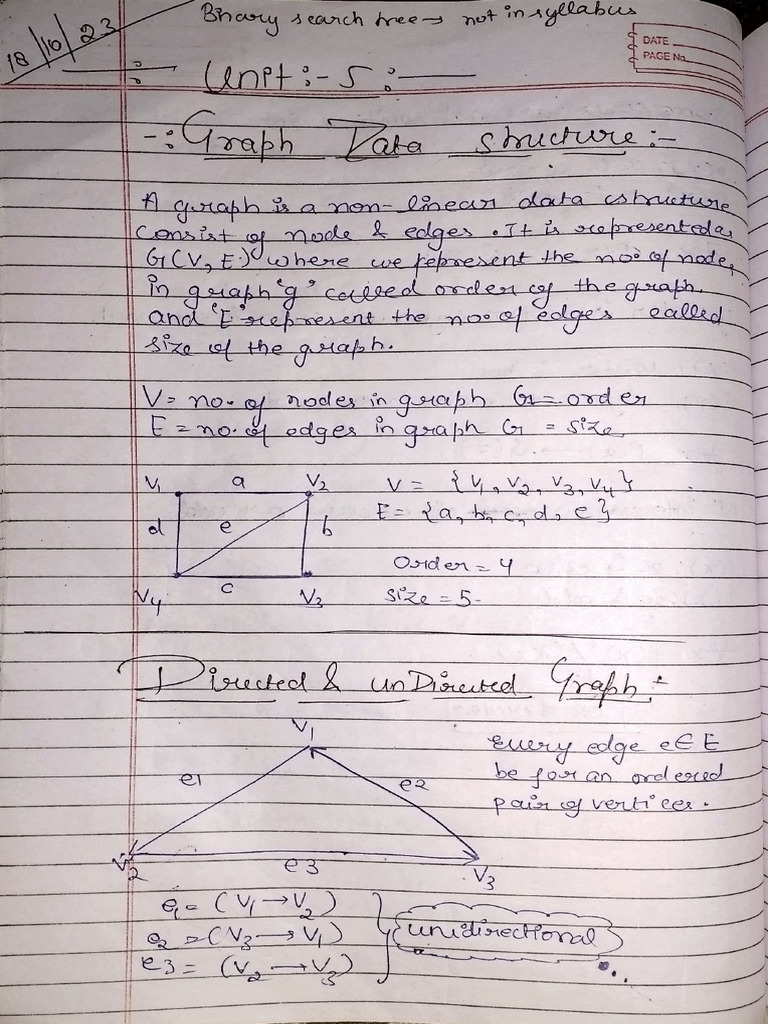 18/10/23
Binary search tree → not in syllabus
DATE
PAGE No.
Unit :- 5 :-
-: Graph Data structure :-
A graph is a non-linear data structure
consist of node & edges. It is represented as
G(V, E) where we pepresent the no. of node,
in graph 'g' called order of the graph.
and 'E' represent the no. of edges called
size of the graph.
V = no. of nodes in graph G = order
E = no. of edges in graph G = size
V1 a V2
d e b
V4 c V3
V = {V1, V2, V3, V4}
E = {a, b, c, d, e}
Order = 4
size = 5
Directed & unDirected Graph :-
V1
e1 e2
V2 e3 V3
every edge e∈E
be for an ordered
pair of vertices.
e1 = (V1 → V2)
e2 = (V3 → V1)
e3 = (V2 → V3)
unidirectional